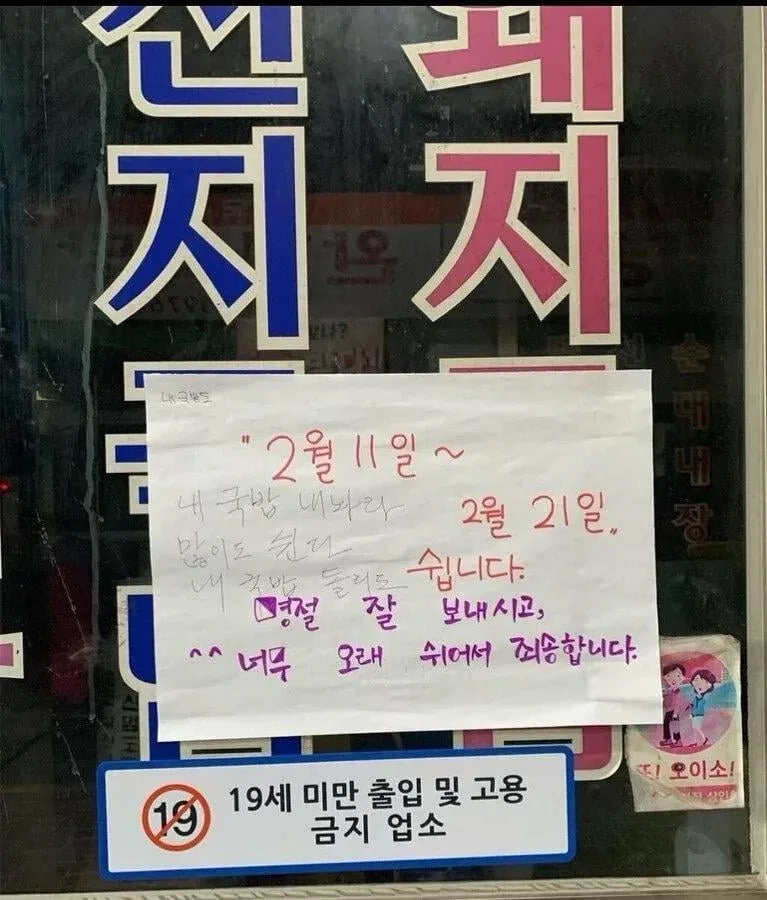 돼지
지
내 국밥도
"2월 11일 ~
2월 21일"
쉽니다.
내 국밥 내놔라
많이도 쉰다
내 국밥 돌려도
명절 잘 보내시고,
^^ 너무 오래 쉬어서 죄송합니다.
순대내장
또! 오이소!
19
19세 미만 출입 및 고용
금지 업소